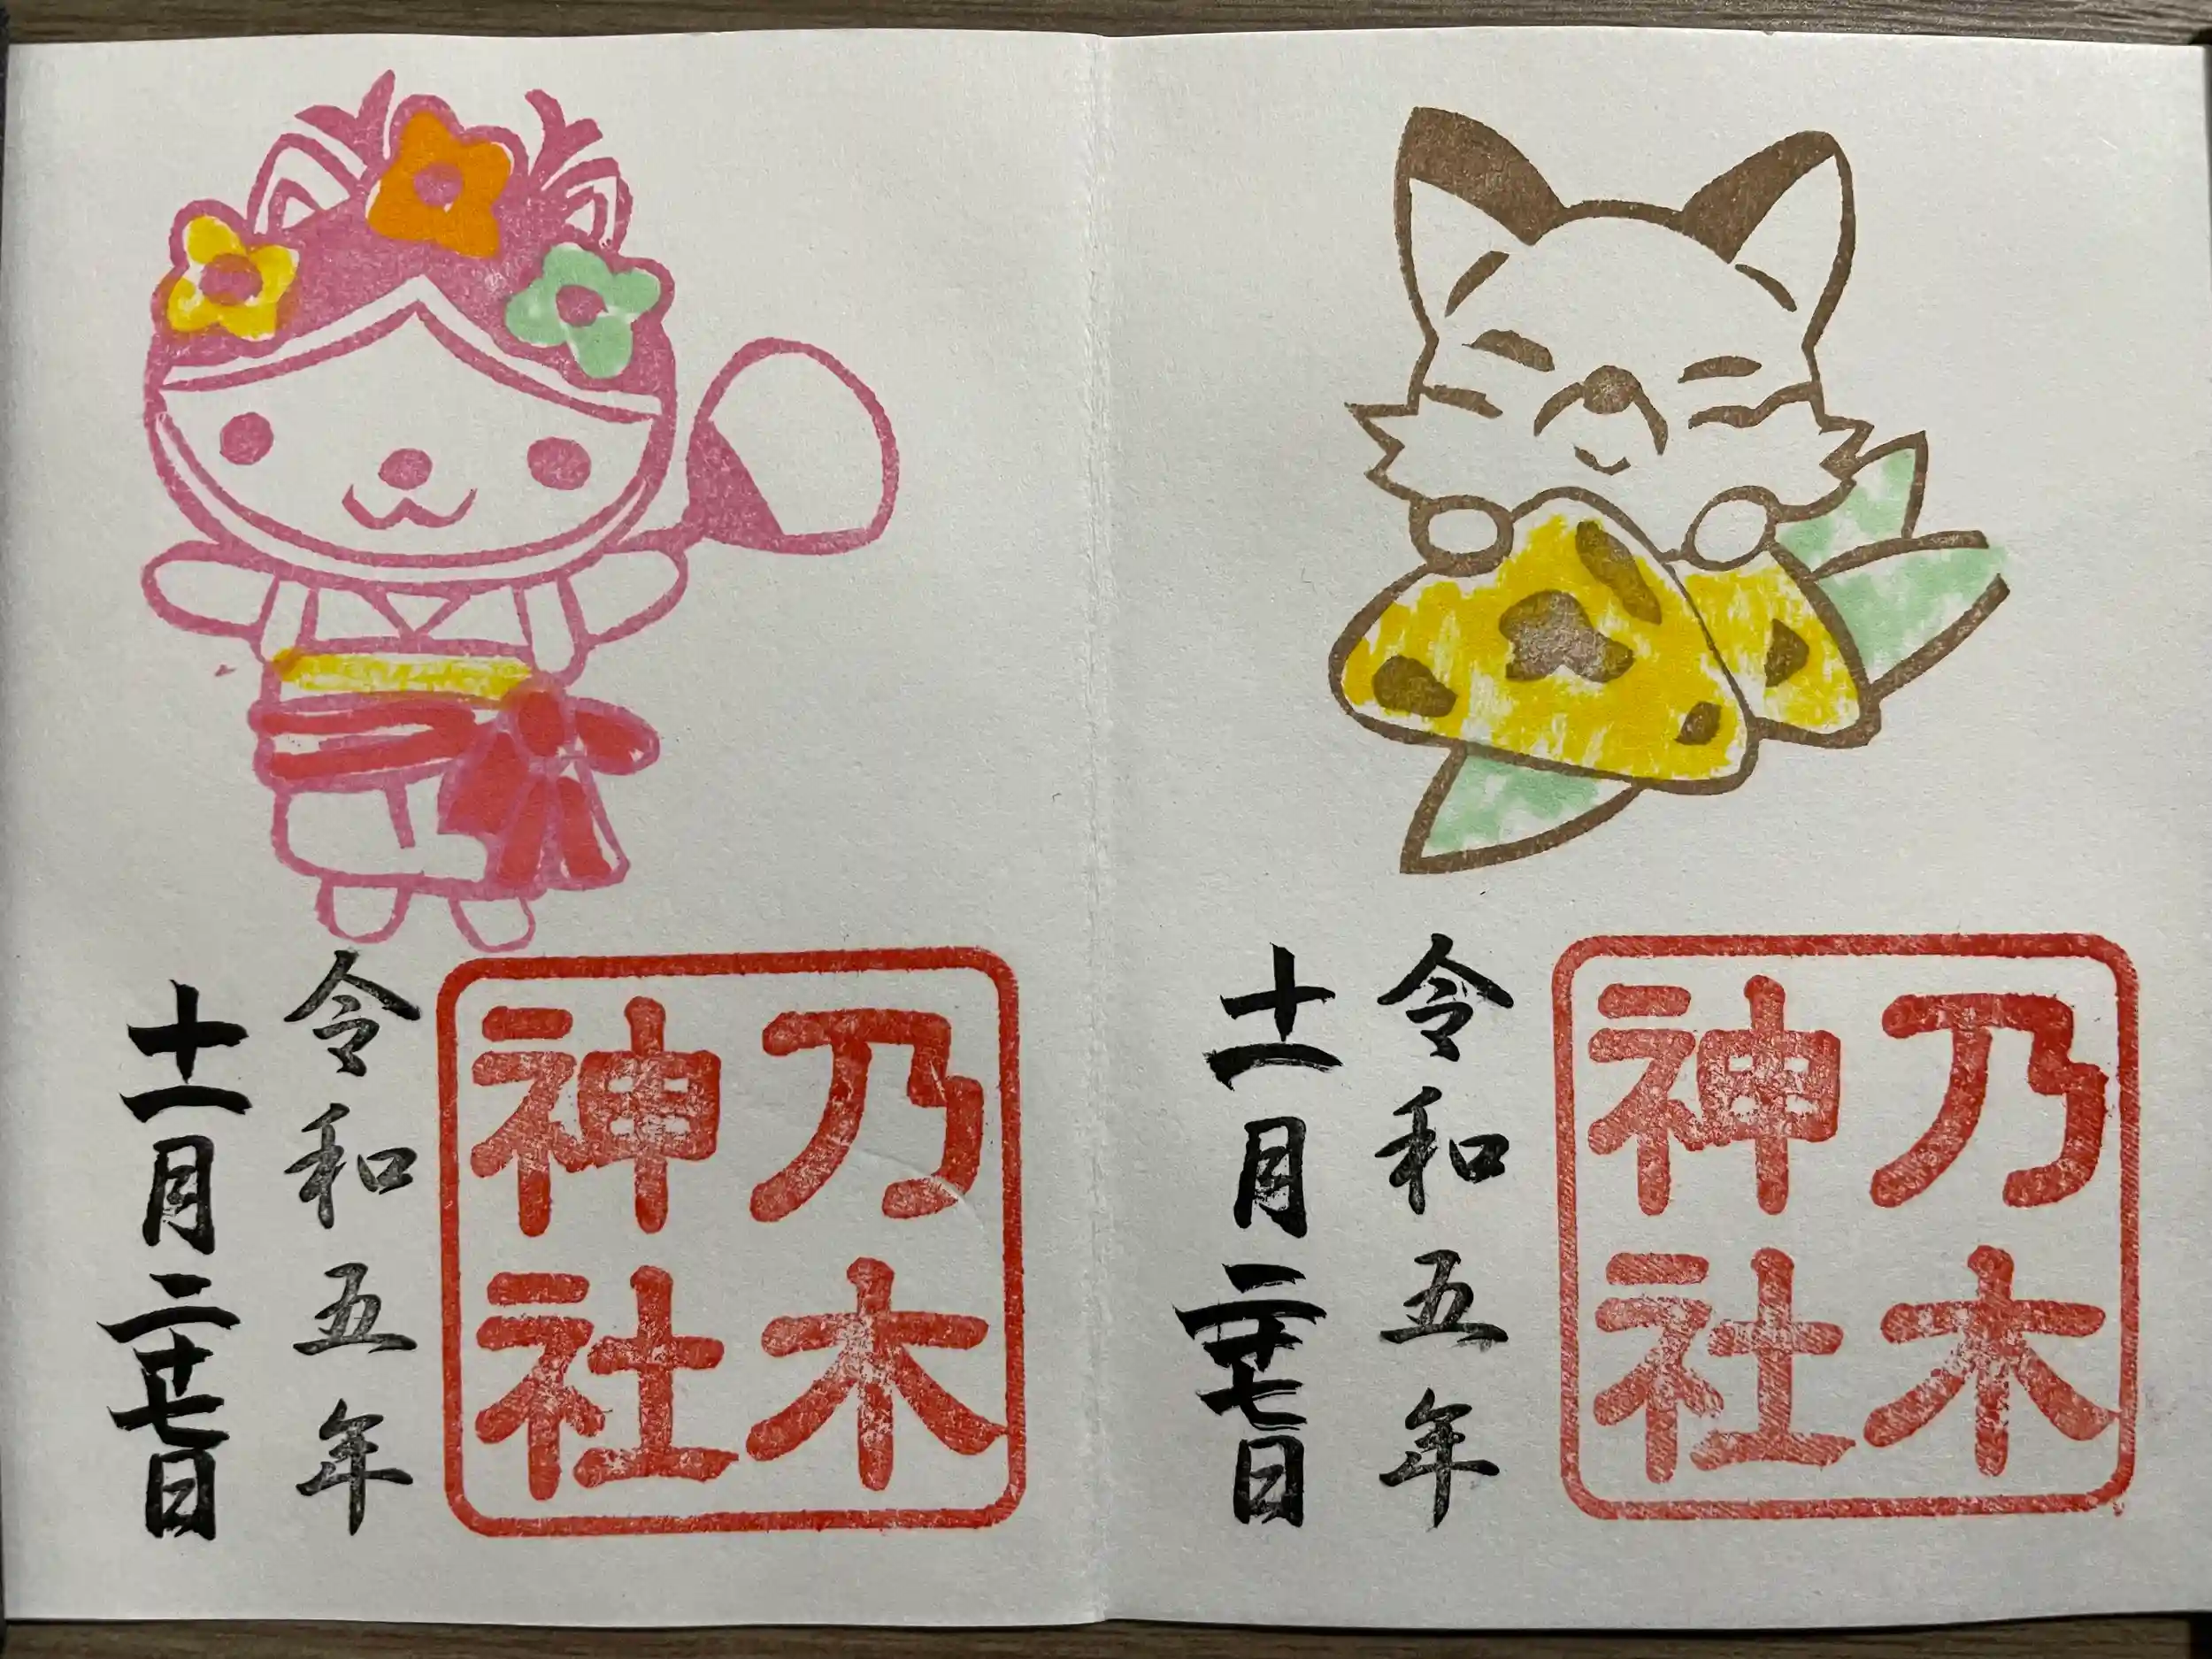 乃木
神社
令和五年
十一月二十七日
乃木
神社
令和五年
十一月二十七日